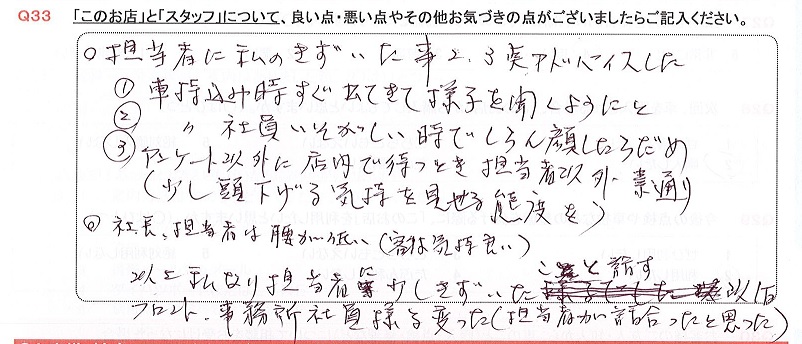 Q33 「このお店」と「スタッフ」について、良い点・悪い点やその他お気づきの点がございましたらご記入ください。
○担当者に私のきずいた事2.3実アドバイスした
① 車持込み時すぐ出てきて様子を聞くようにと
② 〃 社員いそがしい時でしろん顔したらだめ
③ アンケート以外に店内で待つとき担当者以外素通り
(少し頭下げる気持を見せる態度を)
◎ 社長、担当者は腰が低い(客は気持良い)
以上私なり担当者に少しきずいたこと話す 以后
フロント、事務所社員様子変った(担当者が話合ったと思った)